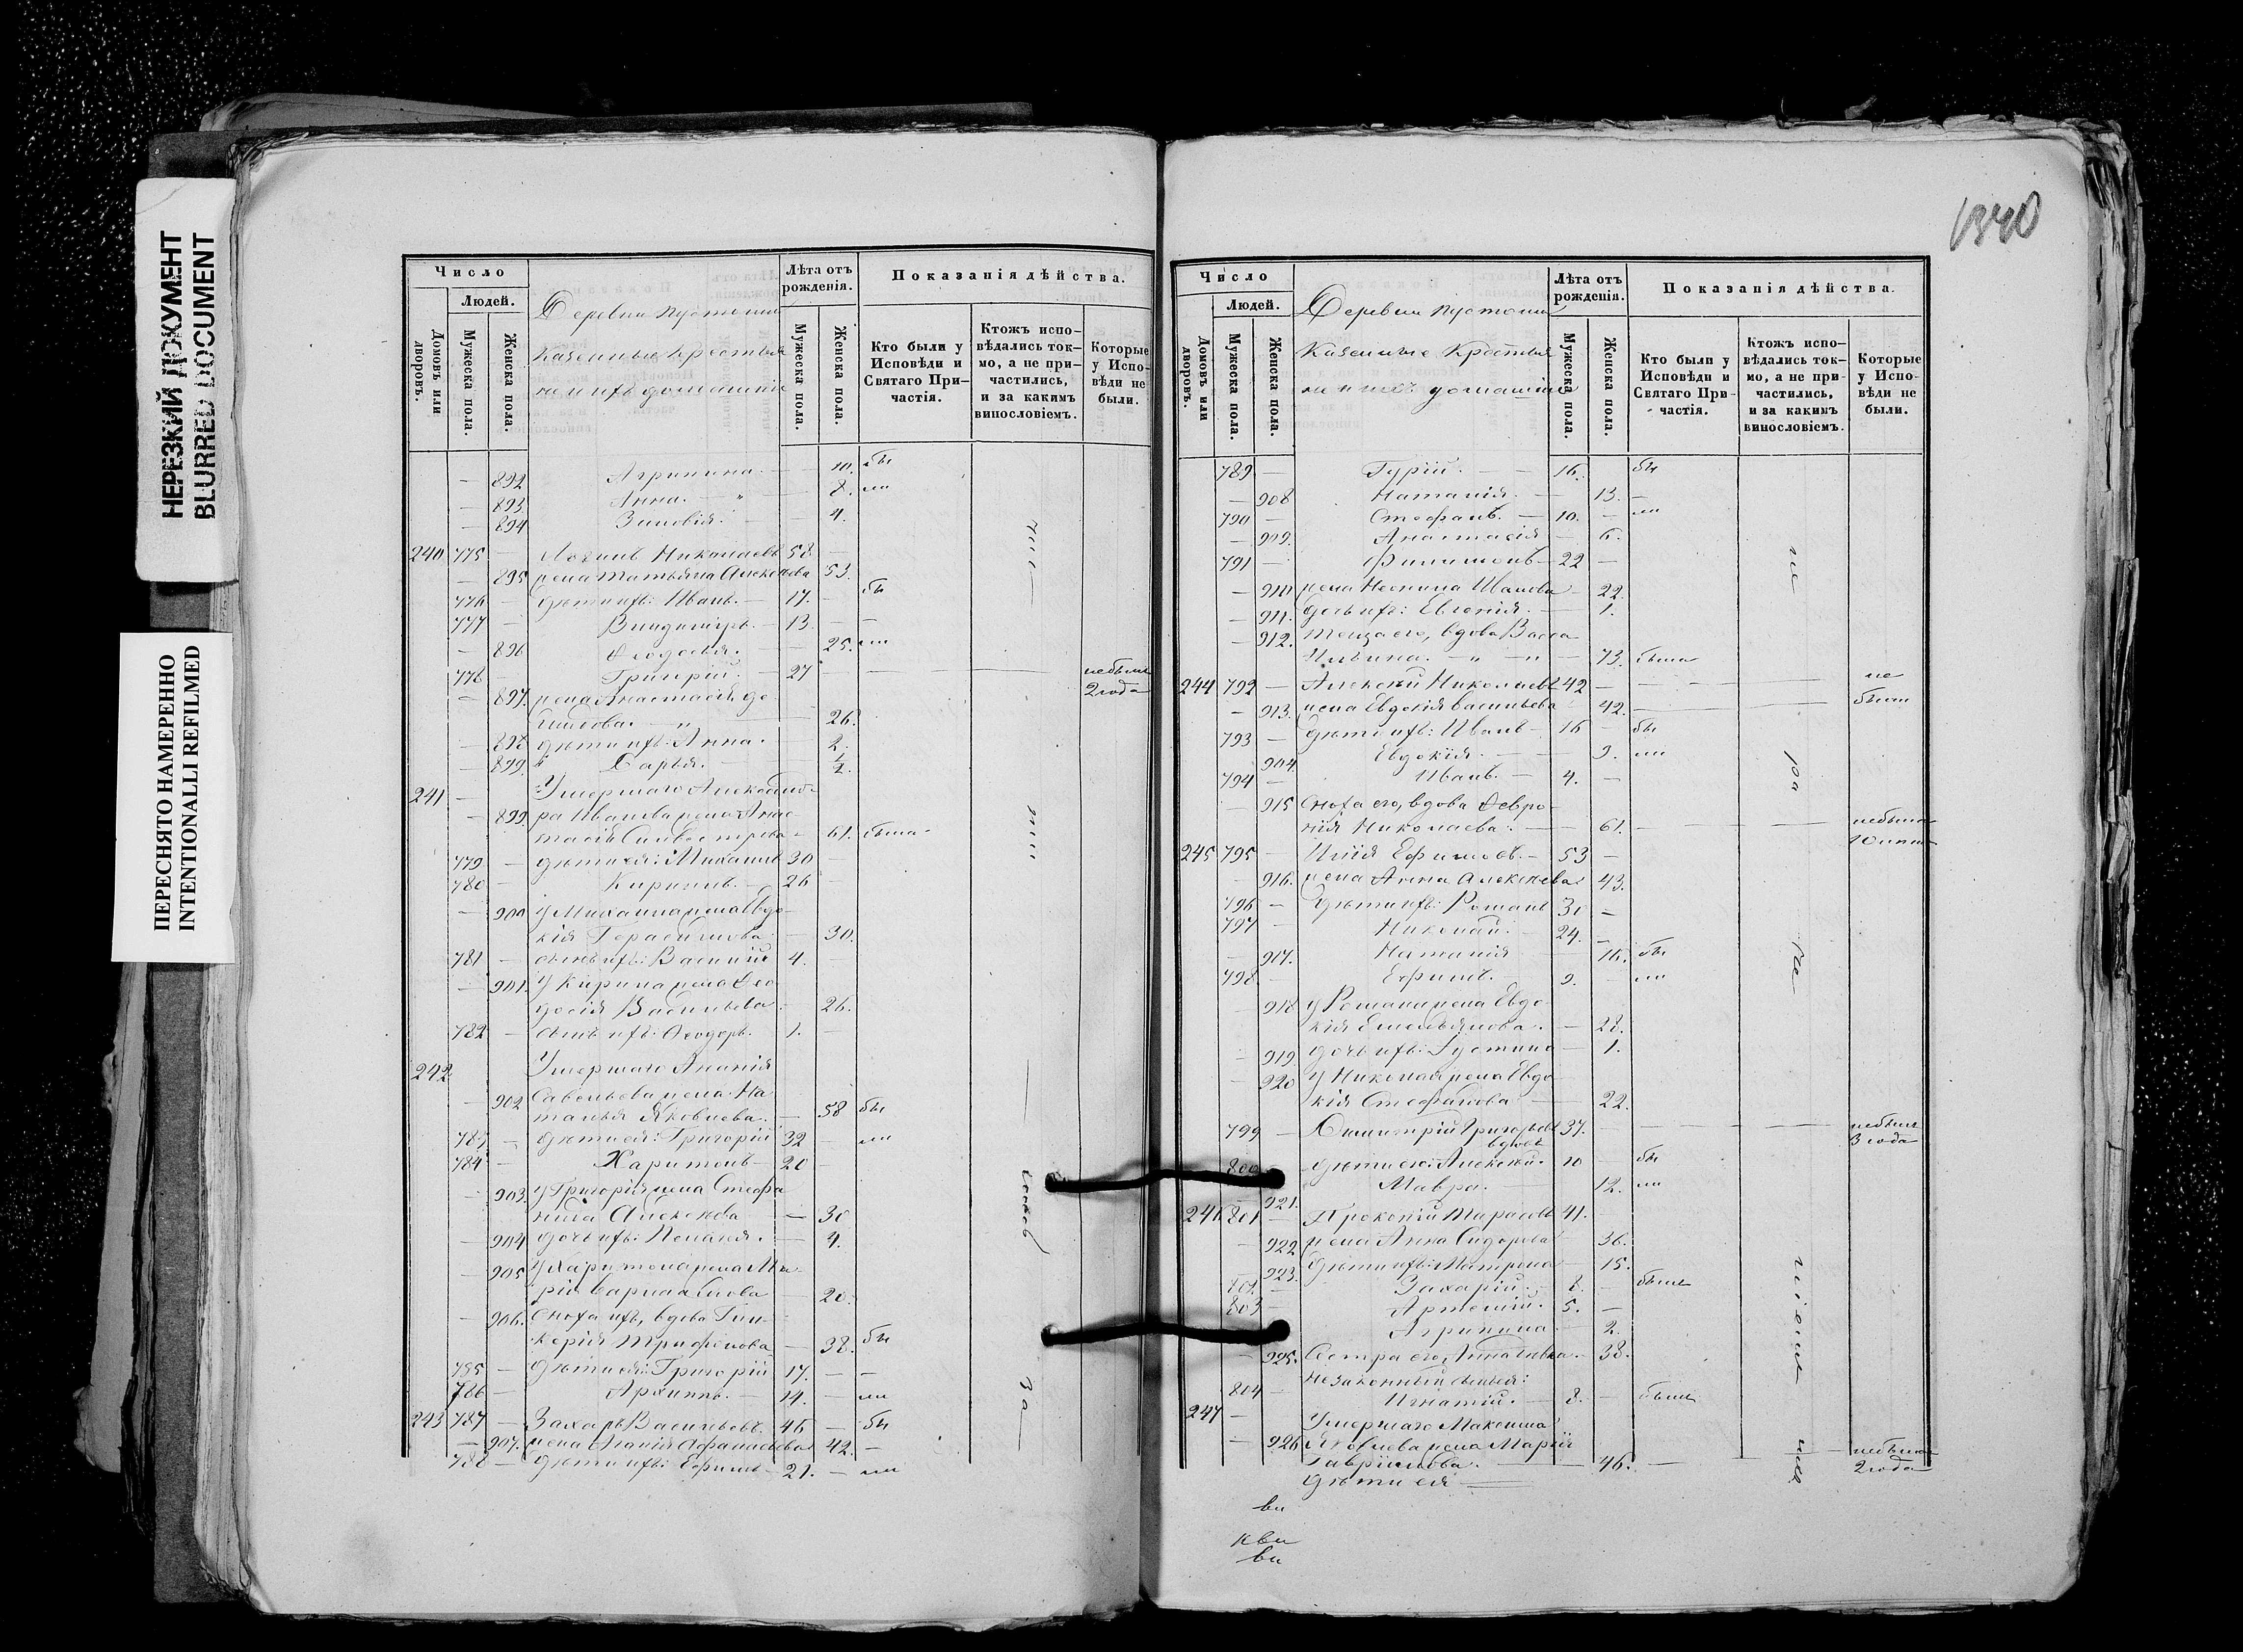 НЕРЕЗКИЙ ДОКУМЕНТ
BLURRED DOCUMENT
ПЕРЕСНЯТО НАМЕРЕННО
INTENTIONALLI REFILMED
Число
Людей.
Домовъ или дворовъ.
Мужеска пола.
Женска пола.
Деревни
Казенные Крестья
не и ихъ домашніе
Лѣта отъ рожденія.
Мужеска пола.
Женска пола.
Показанія дѣйства.
Кто были у Исповѣди и Святаго Причастія.
Ктожъ исповѣдались токмо, а не причастились, и за какимъ винословіемъ.
Которые у Исповѣди не были.
— 892 Агрипина. — 10. бы
— 893 Анна. — " — 8. ли
— 894 Зиновія. — 4.
240 775 — Логинъ Николаевъ 58 —
— 895 жена Татьяна Алексѣева 53.
776 — дѣти ихъ: Иванъ. — 17. — бы
777 — Владиміръ. — 13. — —
— 896 Ѳеодосья. — 25. ли
778 — Григорій. — 27 — — — небылъ
— 897. жена Анастасія Да 2 года
ниловa — " — 26.
— 898 дѣти ихъ: Анна. — 2.
— 899 Дарья. — ½.
241 — Умершаго Александ
— 899 ра Иванова жена Анас
тасія Силвестрова — 61. была
779 — дѣти ея: Михаилъ 30 —
780 — Кирилъ. — 26 —
— 900 у Михаила жена Евдо
кія Герасимова — 30.
781 — сынъ ихъ: Василій 4. —
— 901. у Кирила жена Ѳео
досія Васильева — 26.
782 — сынъ ихъ: Ѳеодоръ. 1. —
242 Умершаго Ананія
— 902 Савельева жена На
талья Яковлева. — 58 бы
783 — дѣти ея: Григорій 32 — ли
784 — Харитонъ — 20
— 903. у Григорія жена Стефа
нида Алексѣева — 30
— 904 дочь ихъ: Пелагея. — 4.
— 905 у Харитона жена Ма
рія Варлаамова — 20.
— 906. сноха ихъ, вдова Гли
керія Трифонова — 38. бы
785 — дѣти ея: Григорій 17. — —
786 — Архипъ. — 14. — ли
243 787 — Захаръ Васильевъ. 46 — бы
— 907. жена Агапія Афанасьева 42. —
788 — дѣти ихъ: Ефимъ — 21. — ли
Число
Людей.
Домовъ или дворовъ.
Мужеска пола.
Женска пола.
Деревни
Казенные Крестья
не и ихъ домашніе
Лѣта отъ рожденія.
Мужеска пола.
Женска пола.
Показанія дѣйства.
Кто были у Исповѣди и Святаго Причастія.
Ктожъ исповѣдались токмо, а не причастились, и за какимъ винословіемъ.
Которые у Исповѣди не были.
789 — Гурій. — — 16. бы
— 908 Наталія. — — 13. —
790 — Стефанъ. — 10. — ли
— 909. Анастасія — 6.
791 — Филимонъ — 22 —
— 910 жена Неонила Иванова 22.
— 911. дочь ихъ: Евгенія. — 1.
— 912. теща его, вдова Васса
Ильина. — " — " — 73. была
244 792 — Алексѣй Николаевъ 42 — — — не
— 913. жена Евдокія Васильева 42. — — были
793 — дѣти ихъ: Иванъ — 16 — бы
904. Евдокія. — 9. ли
794 — Иванъ. — 4. —
— 915 сноха его, вдова Ѳевро
нія Николаева. — 61. — — — небыла
245 795 — Илія Ефимовъ. — 53 —
— 916. жена Анна Алексѣева 43.
796 — дѣти ихъ: Романъ 30 —
797 — Николай. — 24. —
— 917. Наталія — 16. бы
798 — Ефимъ. — 9. — ли
— 918 у Романа жена Евдо
кія Емельянова. — 28.
— 919 дочь ихъ: Іустина — 1.
— 920 у Николая жена Евдо
кія Стефанова — 22.
799 — Димитрій Григорьевъ 37. — — — небылъ
вдовъ 3 года
800 — дѣти его: Алексѣй. 20 — бы
921. Мавра. — 12. ли
246 801 — Прокопій Тарасовъ 41.
— 922 жена Анна Сидорова — 36.
— 923. дѣти ихъ: Матрона — 15.
802 — Захарій. — 8. — были
803 — Артемій. 5. —
Агрипина — 2.
— 925. Сестра его, — 38.
804 — незаконный сынъ ея:
Игнатій. — 8. — былъ
247 — Умершаго Максима
— 926 Яковлева жена Марія — небыла
Гаврилова. — — 46. — 2 года
дѣти ея —